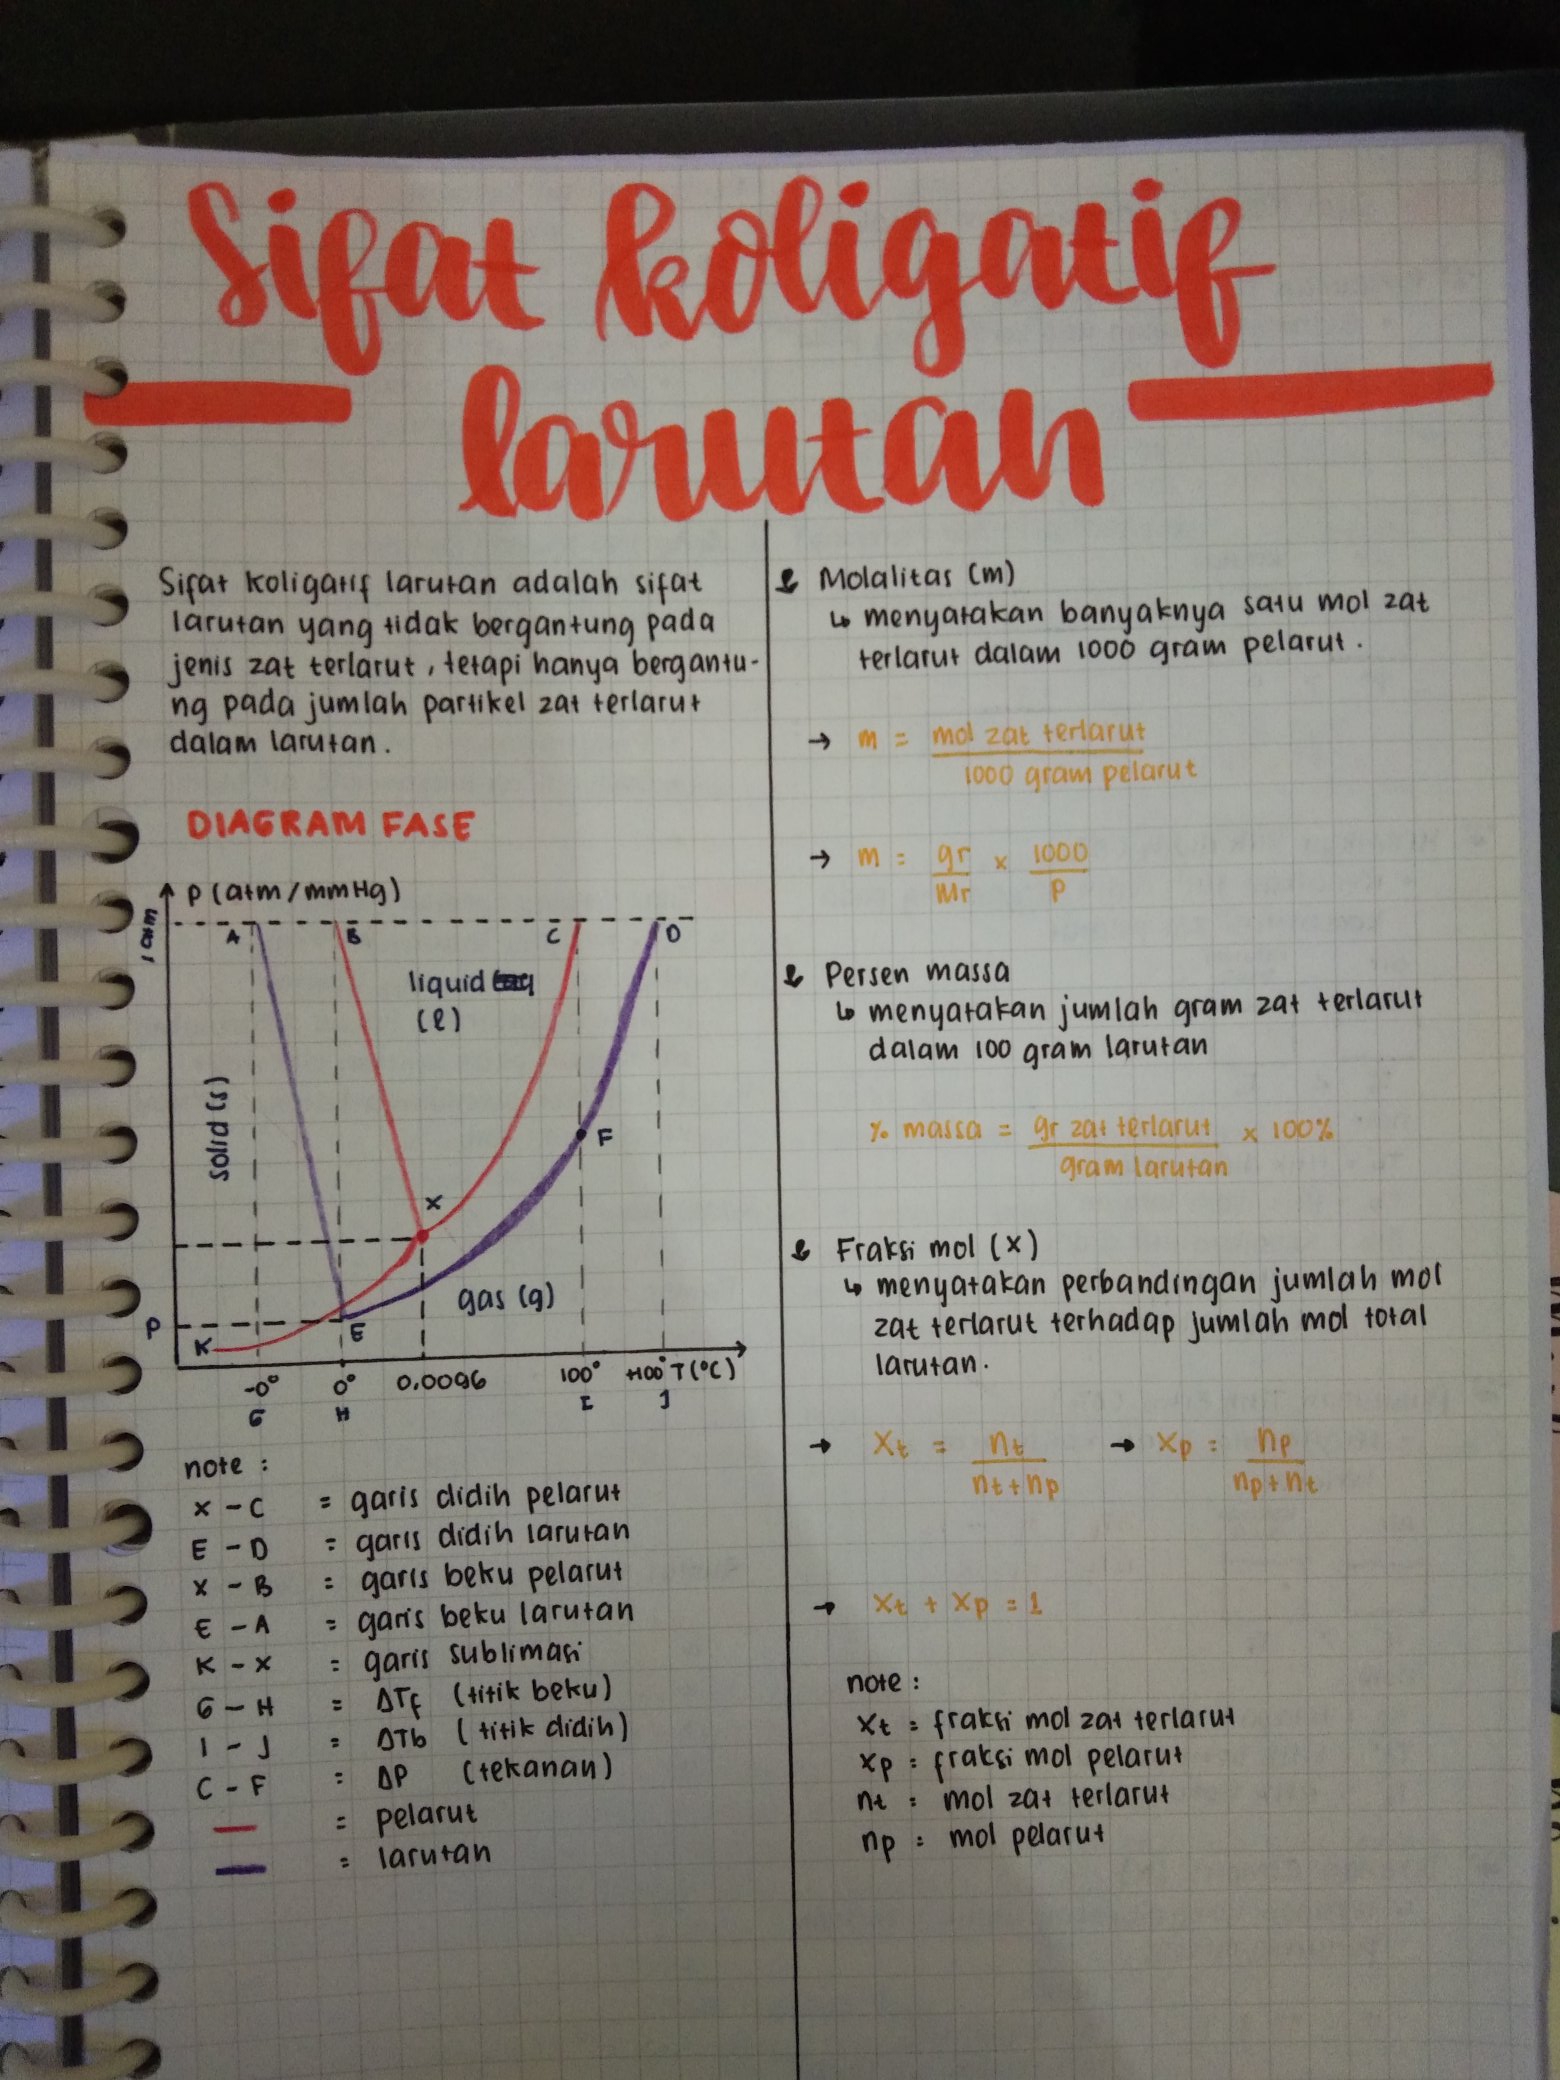 Sifat koligatif
larutan
Sifat koligatif larutan adalah sifat
larutan yang tidak bergantung pada
jenis zat terlarut, tetapi hanya bergantu-
ng pada jumlah partikel zat terlarut
dalam larutan.
DIAGRAM FASE
P (atm/mmHg)
1 atm
A B C D
liquid
(l)
solid (s)
F
X
gas (g)
P
K
E
-0° 0° 0,0096 100° +100° T(°C)
G H I J
note :
X - C = garis didih pelarut
E - D = garis didih larutan
X - B = garis beku pelarut
E - A = garis beku larutan
K - X = garis sublimasi
G - H = ΔTf (titik beku)
I - J = ΔTb (titik didih)
C - F = ΔP (tekanan)
= pelarut
= larutan
Molalitas (m)
↳ menyatakan banyaknya satu mol zat
terlarut dalam 1000 gram pelarut.
→ m = mol zat terlarut
1000 gram pelarut
→ m = gr × 1000
Mr P
Persen massa
↳ menyatakan jumlah gram zat terlarut
dalam 100 gram larutan
% massa = gr zat terlarut × 100%
gram larutan
Fraksi mol (x)
↳ menyatakan perbandingan jumlah mol
zat terlarut terhadap jumlah mol total
larutan.
→ Xt = nt → Xp = np
nt + np np + nt
→ Xt + Xp = 1
note :
Xt = fraksi mol zat terlarut
Xp = fraksi mol pelarut
nt = mol zat terlarut
np = mol pelarut